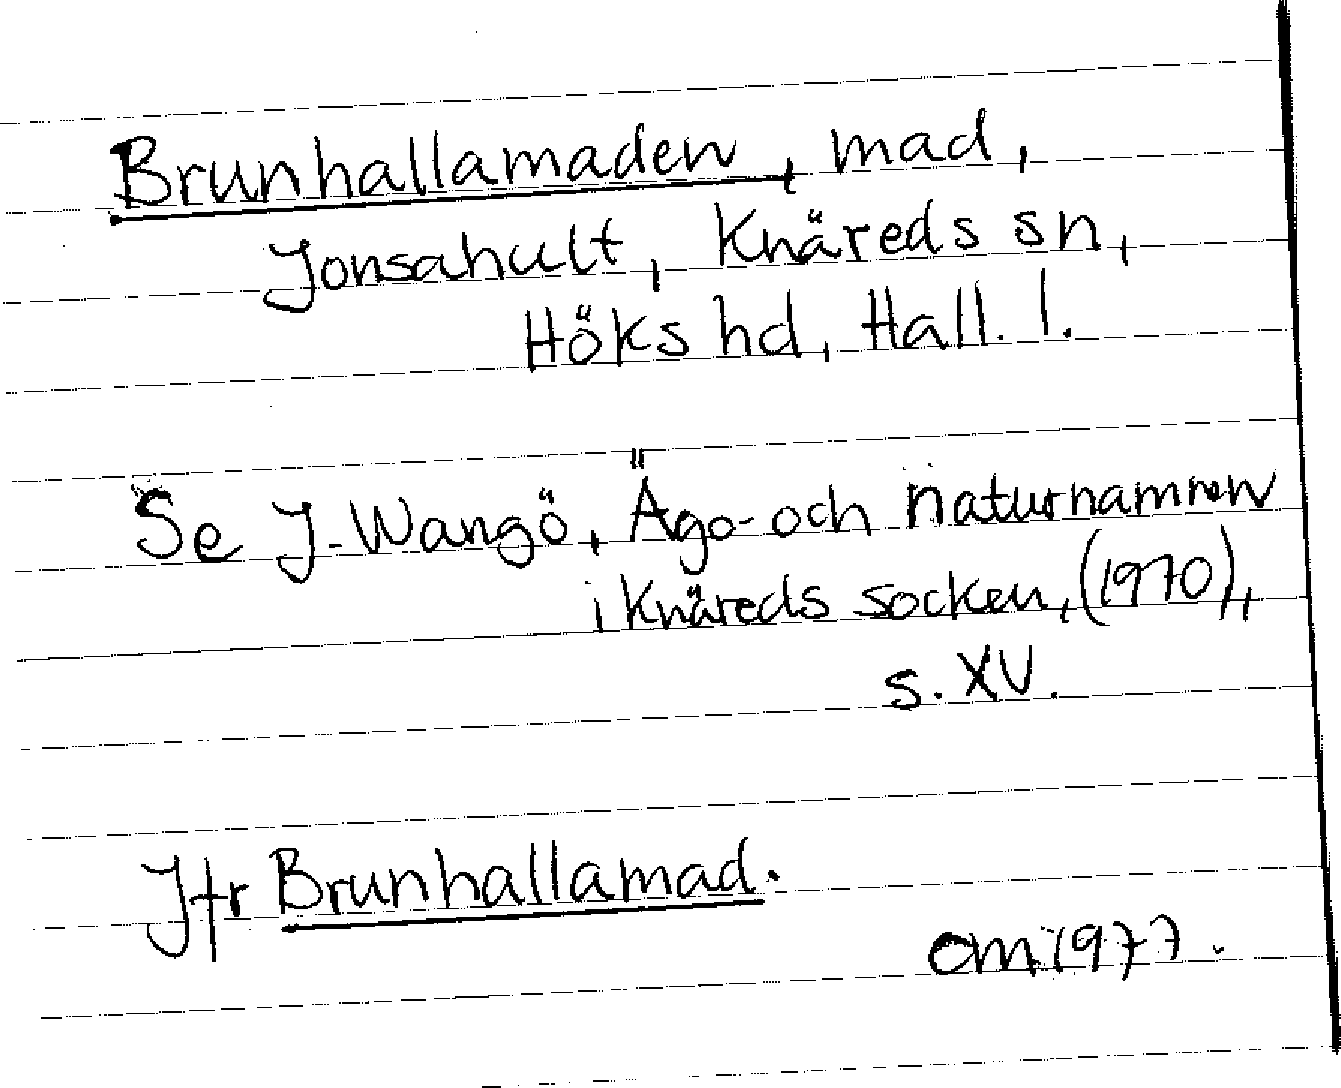 Brunhallamaden, mad,
Jonsahult, Knäreds sn,
Höks hd, Hall. l.
Se J. Wangö, Ägo- och naturnamnen
i Knäreds socken, (1970),
s. XV.
Jfr Brunhallamad.
om 1977.